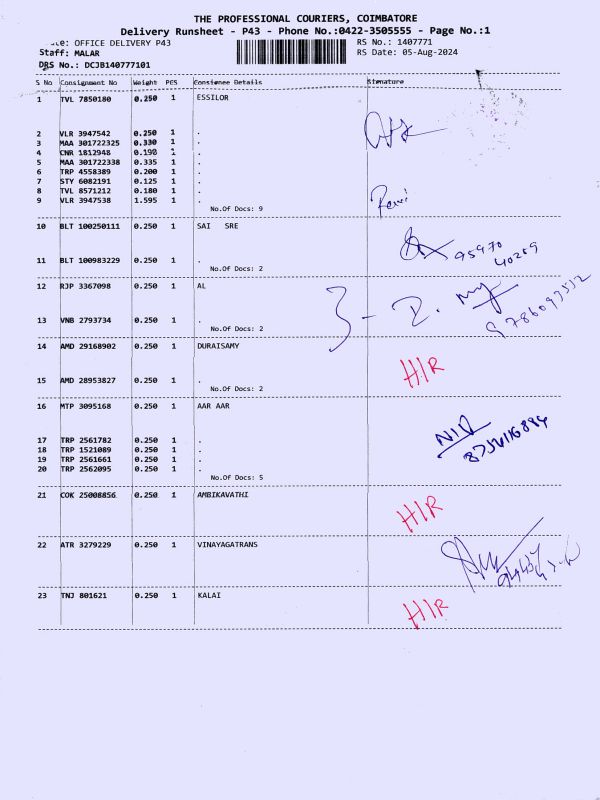 THE PROFESSIONAL COURIERS, COIMBATORE
Delivery Runsheet - P43 - Phone No.:0422-3505555 - Page No.:1
OFFICE DELIVERY P43 RS No.: 1407771
Staff: MALAR RS Date: 05-Aug-2024
DRS No.: DCJB140777101
S No Consignment No Weight PCS Consignee Details Signature
1 TVL 7850180 0.250 1 ESSILOR
2 VLR 3947542 0.250 1 .
3 MAA 301722325 0.330 1 .
4 CNR 1812948 0.190 1 .
5 MAA 301722338 0.335 1 .
6 TRP 4558389 0.200 1 .
7 STY 6082191 0.125 1 .
8 TVL 8571212 0.180 1 .
9 VLR 3947538 1.595 1 . Ravi
No.Of Docs: 9
10 BLT 100250111 0.250 1 SAI SRE
95970
40259
11 BLT 100983229 0.250 1 .
No.Of Docs: 2
12 RJP 3367098 0.250 1 AL
13 VNB 2793734 0.250 1 .
No.Of Docs: 2
14 AMD 29168902 0.250 1 DURAISAMY
H/R
15 AMD 28953827 0.250 1 .
No.Of Docs: 2
16 MTP 3095168 0.250 1 AAR AAR
17 TRP 2561782 0.250 1 .
18 TRP 1521089 0.250 1 .
19 TRP 2561661 0.250 1 .
20 TRP 2562095 0.250 1 .
No.Of Docs: 5
21 COK 25008856 0.250 1 AMBIKAVATHI
H/R
22 ATR 3279229 0.250 1 VINAYAGATRANS
23 TNJ 801621 0.250 1 KALAI
H/R